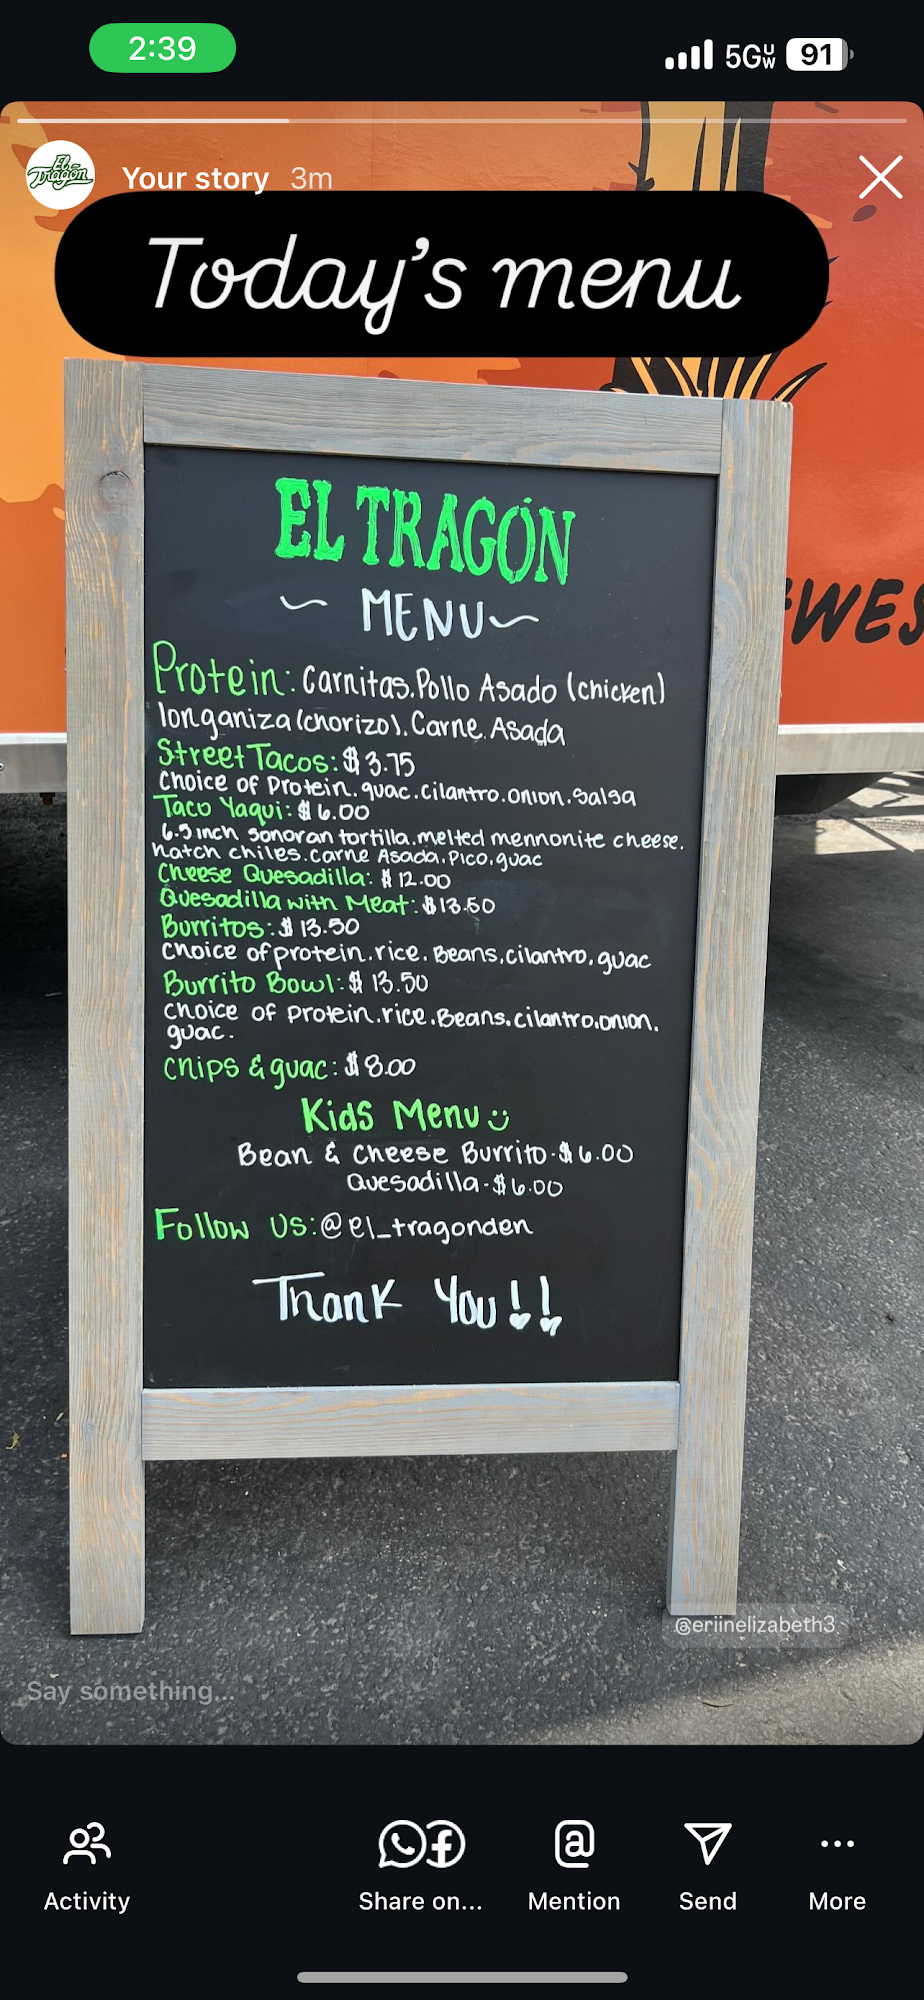 2:39
5GUW 91
El Tragón
Your story 3m
Today's menu
EL TRAGÓN
~ MENU ~
Protein: Carnitas. Pollo Asado (chicken)
longaniza (chorizo). Carne Asada
Street Tacos: $3.75
Choice of Protein. guac. cilantro. onion. Salsa
Taco Yaqui: $6.00
6.5 inch sonoran tortilla. melted mennonite cheese.
hatch chiles. Carne Asada. Pico. guac
Cheese Quesadilla: $12.00
Quesadilla with Meat: $13.50
Burritos: $13.50
Choice of protein. rice. Beans. cilantro. guac
Burrito Bowl: $13.50
Choice of Protein. rice. Beans. cilantro. onion.
guac.
chips & guac: $8.00
Kids Menu
Bean & Cheese Burrito - $6.00
Quesadilla - $6.00
Follow Us: @el_tragonden
Thank You!!
@eriinelizabeth3
Say something...
Activity
Share on...
Mention
Send
More